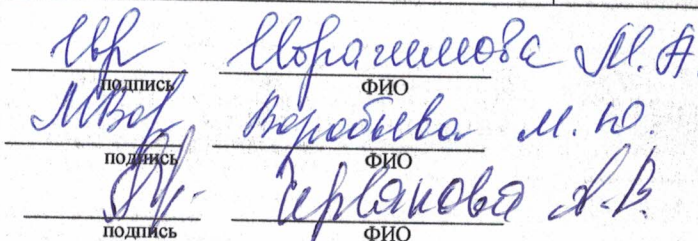 Ибрагимова М. А
подпись ФИО
МВор Воробьева М. Ю.
подпись ФИО
Червакова А. В.
подпись ФИО